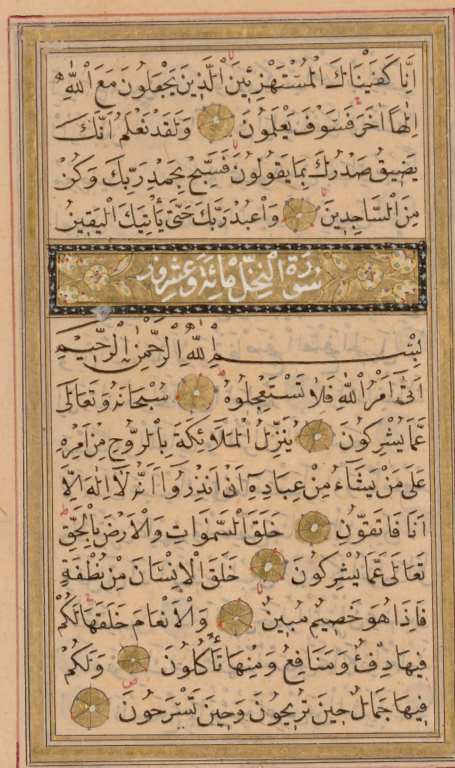 اِنَّا كَفَيْنَاكَ الْمُسْتَهْزِئِينَ اَلَّذِينَ يَجْعَلُونَ مَعَ اللّٰهِ
اِلٰهًا اٰخَرَ فَسَوْفَ يَعْلَمُونَ وَلَقَدْ نَعْلَمُ اَنَّكَ
يَضِيقُ صَدْرُكَ بِمَا يَقُولُونَ فَسَبِّحْ بِحَمْدِ رَبِّكَ وَكُنْ
مِنَ السَّاجِدِينَ وَاعْبُدْ رَبَّكَ حَتّٰى يَأْتِيَكَ الْيَقِينُ
سورة النحل مائة وعشرون
بِسْمِ اللّٰهِ الرَّحْمٰنِ الرَّحِيمِ
اَتٰى اَمْرُ اللّٰهِ فَلَا تَسْتَعْجِلُوهُ سُبْحَانَهُ وَتَعَالٰى
عَمَّا يُشْرِكُونَ يُنَزِّلُ الْمَلَائِكَةَ بِالرُّوحِ مِنْ اَمْرِهِ
عَلٰى مَنْ يَشَاءُ مِنْ عِبَادِهِ اَنْ اَنْذِرُوا اَنَّهُ لَا اِلٰهَ اِلَّا
اَنَا فَاتَّقُونِ خَلَقَ السَّمٰوَاتِ وَالْاَرْضَ بِالْحَقِّ
تَعَالٰى عَمَّا يُشْرِكُونَ خَلَقَ الْاِنْسَانَ مِنْ نُطْفَةٍ
فَاِذَا هُوَ خَصِيمٌ مُبِينٌ وَالْاَنْعَامَ خَلَقَهَا لَكُمْ
فِيهَا دِفْءٌ وَمَنَافِعُ وَمِنْهَا تَأْكُلُونَ وَلَكُمْ
فِيهَا جَمَالٌ حِينَ تُرِيحُونَ وَحِينَ تَسْرَحُونَ